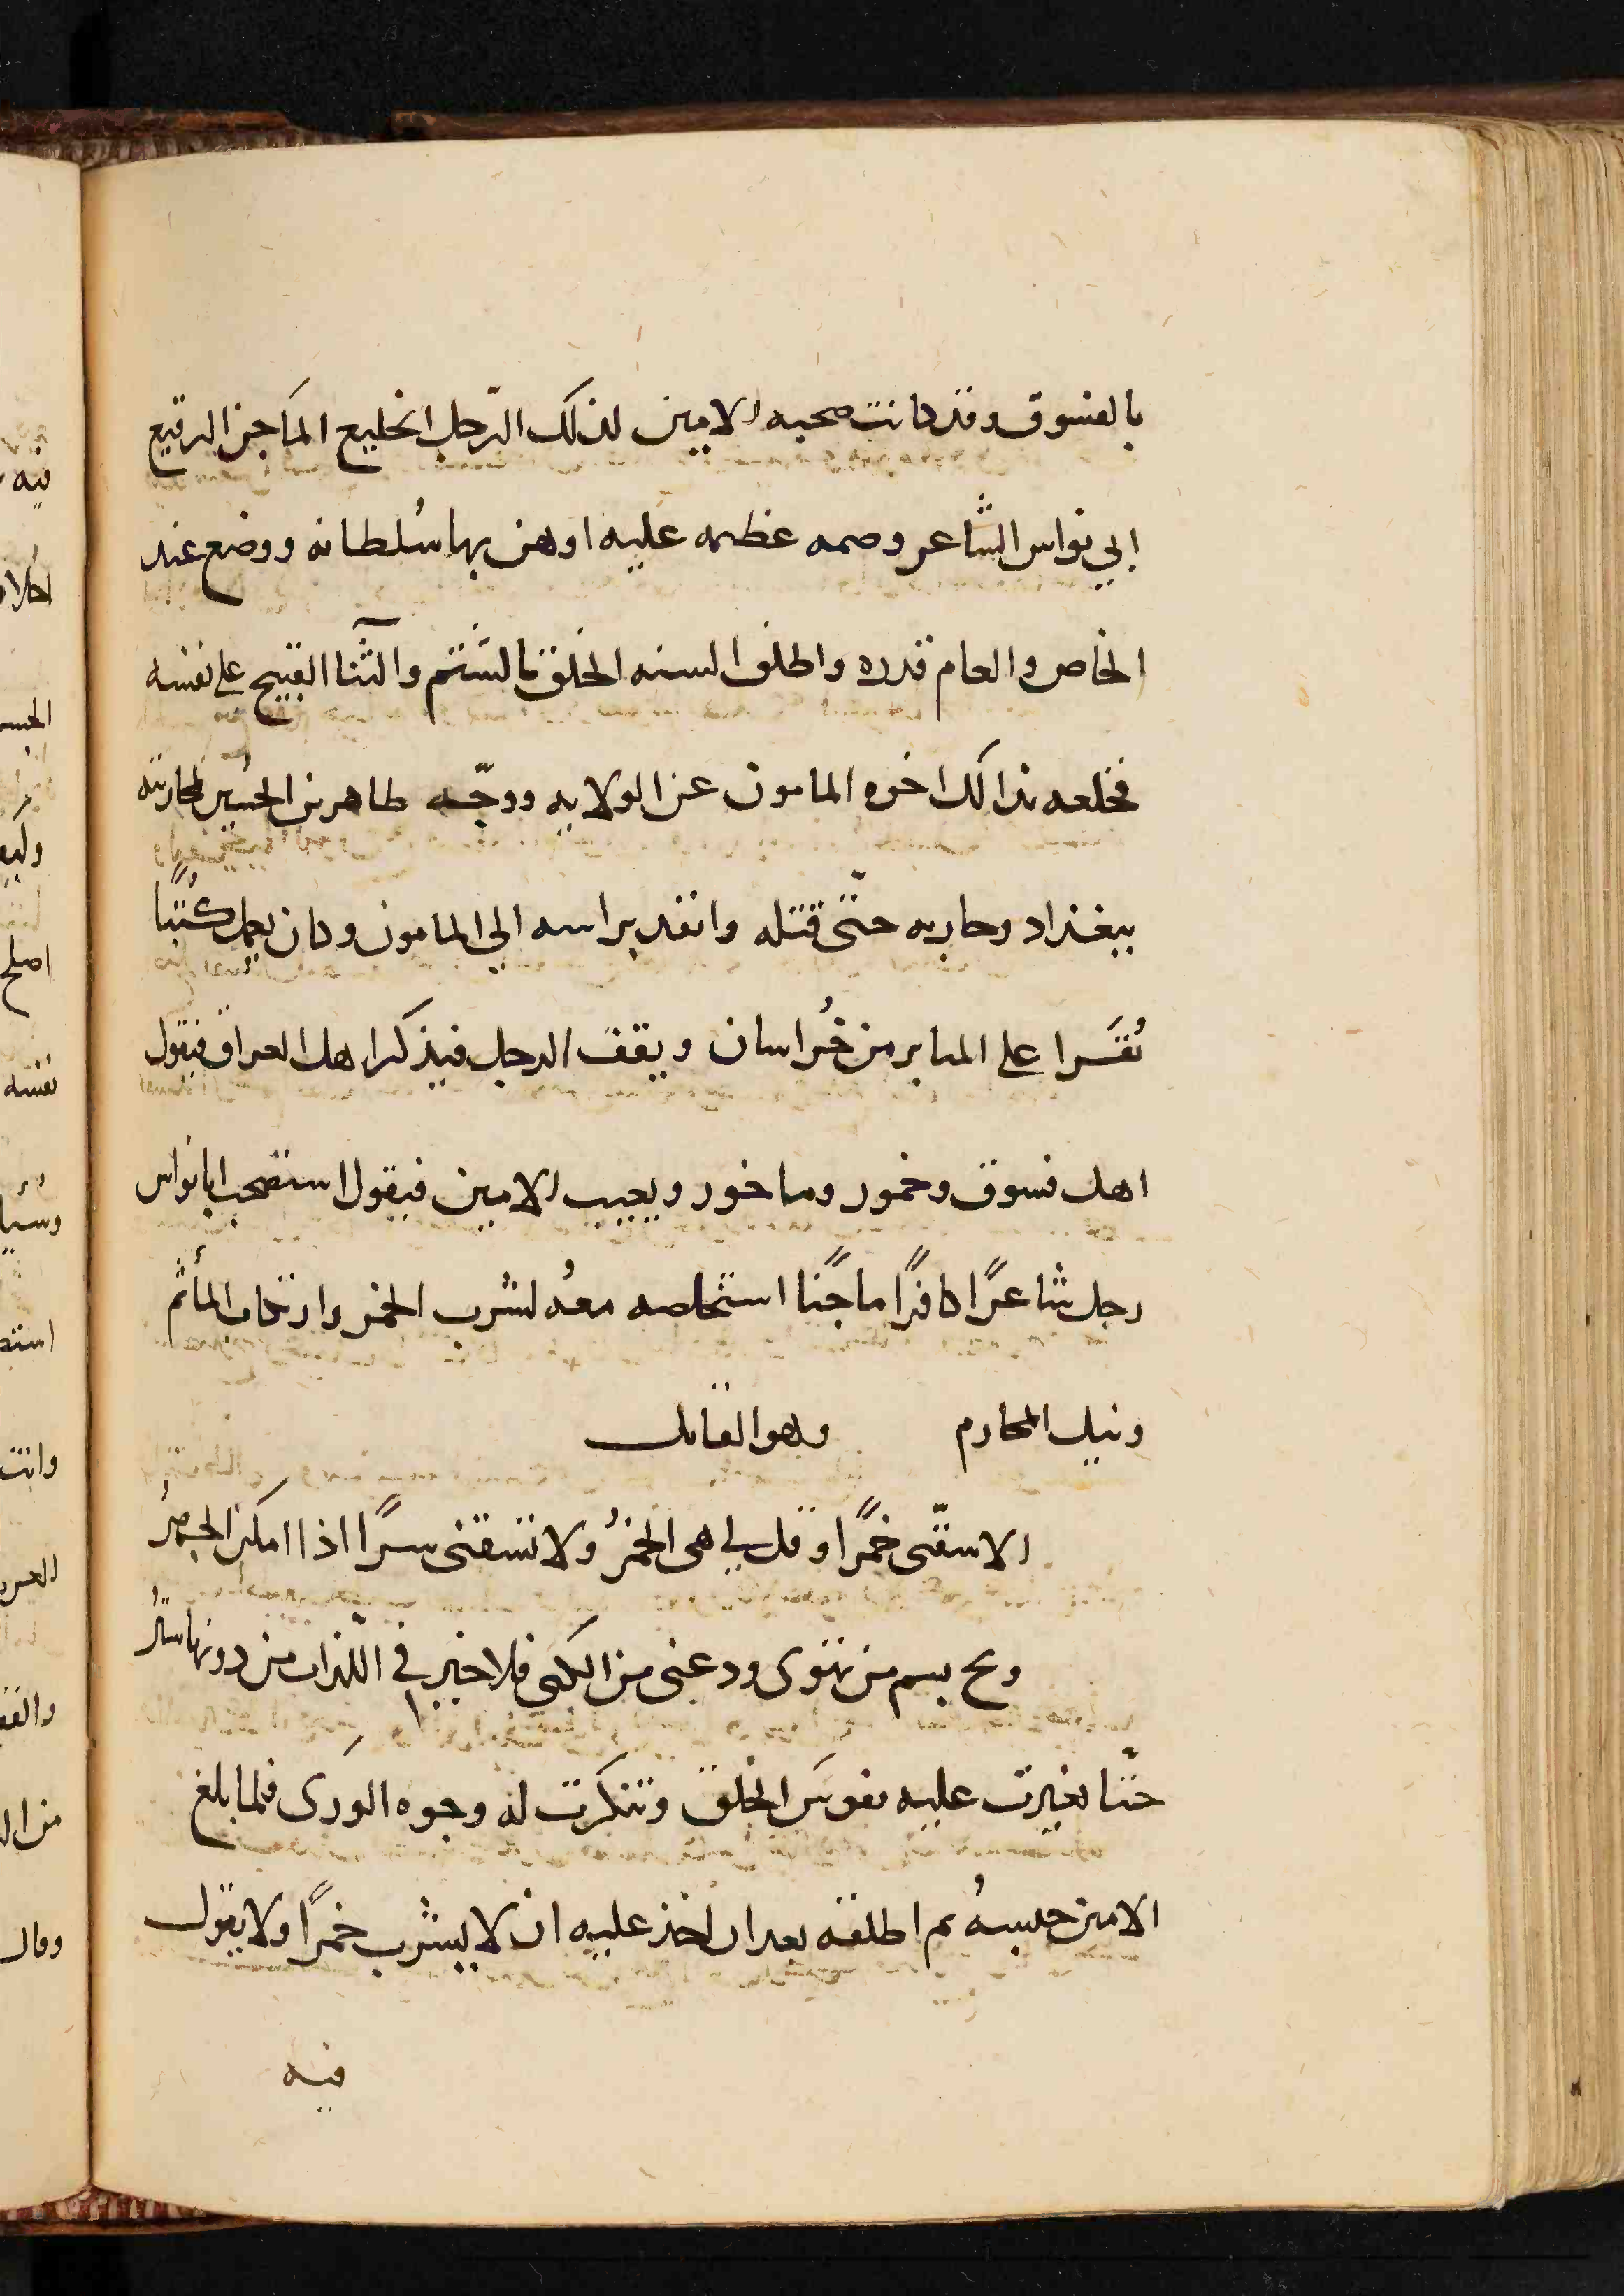 بالفسوق وقد كانت صحبه الامين لذلك الرّجل الخليع الماجن الرقيع
ابي نواس الشاعر وصمه عظيمه عليه اوهن بها سُلطانه ووضع عند
الخاص والعام قدره واطلق السنه الخلق بالشتم والثّنآ القبيح على نفسه
فخلعه بذالك اخوه المامون عن الولايه ووجّه طاهر بن الحسُين لمحاربته
ببغداد وحاربه حتّى قتله وانفد براسه الي المامون وكان يعمل كُتبًا
تُقَرا على المنابر من خُراسان ويقف الرجل فيذكر اهل العراق فيقول
اهل فسوق وخمور وماخور ويعيب الامين فيقول استصحب ابا نواس
رجل شاعرًا كافرًا ماجنًا استخلصه معهُ لشرب الخمر وارتكاب المأثم
ونيل المحارم وهو القائل
الا سقّنى خمرًا وقل لي هى الخمرُ ولا تسقنى سرًا اذا امكن الجهرُ
وبح باسم من تهوى ودعنى من الكنى فلا خير في اللّذات من دونها سترُ
حتّا تغيرت عليه نفوسَ الخلق وتنكرت له وجوه الورَى فلما بلغ
الامين حبسهُ ثم اطلقه بعد ان اخذ عليه ان لا يشرب خمرًا ولا يقول
فيه